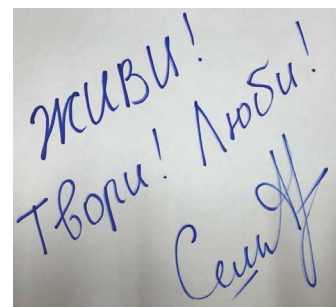 живи!
Твори! Люби!